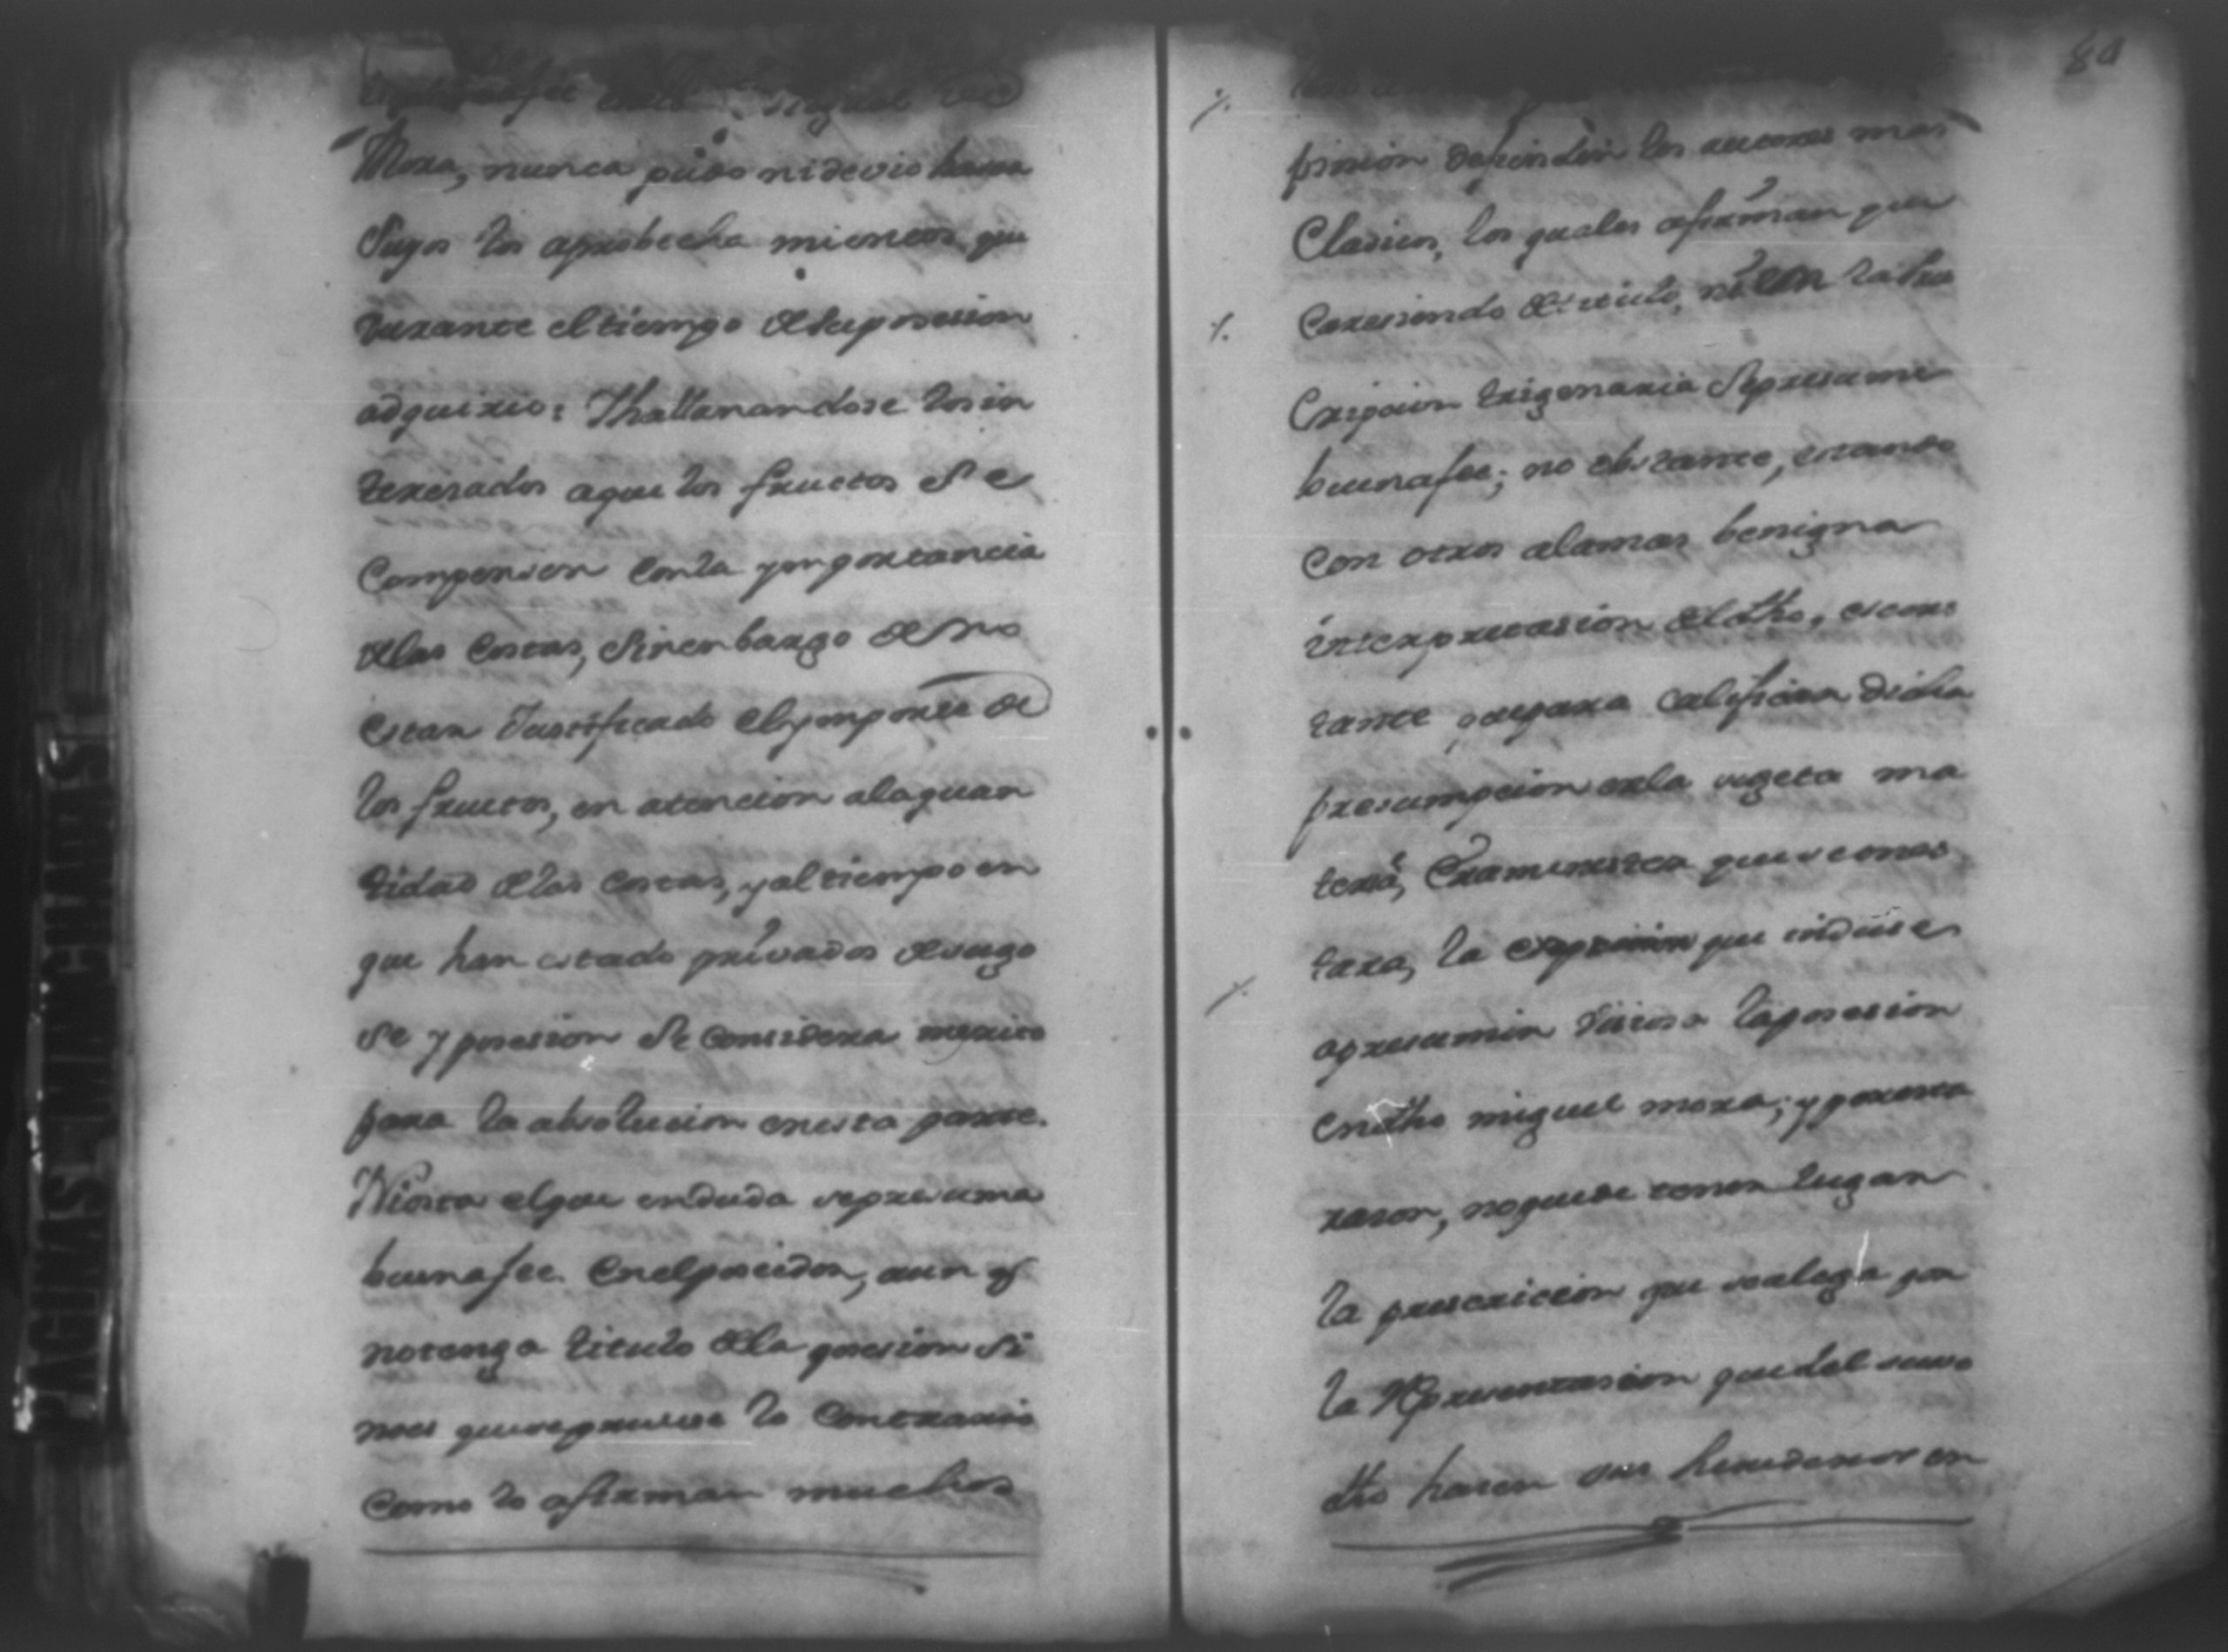 Mora, nunca pudo ni devio haser
Suyos los aprobecha mientos que
durante el tiempo desuposession
adquirio: Thallanandose los in
teresados aque los fructos Se
Compensen conla ymportancia
delas Costas, Sinembargo de no
estar Justificado elymporte de
los fructos, en atencion alaquan
tidad delas costas, y al tiempo en
que han estado privados desugo
se y posesion Se considera merito
para la absolucion enesta parte.
Niesta elque enduda sepresuma
buenafee Enelposeidor, aun q.
notenga titulo dela posesion Si
noes quesepruebe lo Contrario
Como lo afirman muchos
80
pinion defienden los autores mas
Clasicos, los quales afirman que
Caresiendo detitulo, no en la Pres
Cripcion trigenaria Sepresume
buenafee; no obstante, estando
Con otros alamas benigna
interpretasion deldho, es cons
tante quepara calificar dicha
presumpcion enla sugeta ma
teria, Era menester que se cons
tara, la que induise
apresumir viciosa laposesion
Endho miguel mora; y poresta
rason, nopuede tener lugar
la prescricion que sealega por
la Representasion quedel suso
dho hasen sus herederos en